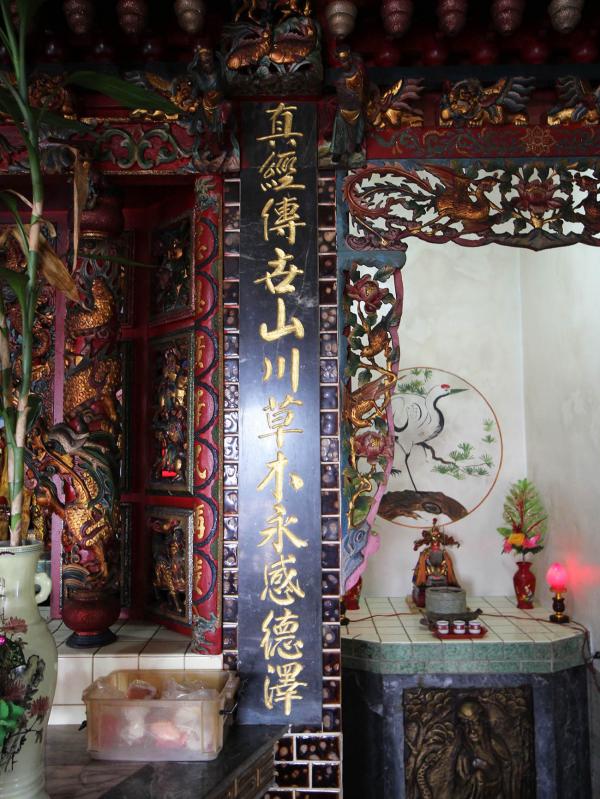 真經傳世山川草木永感德澤